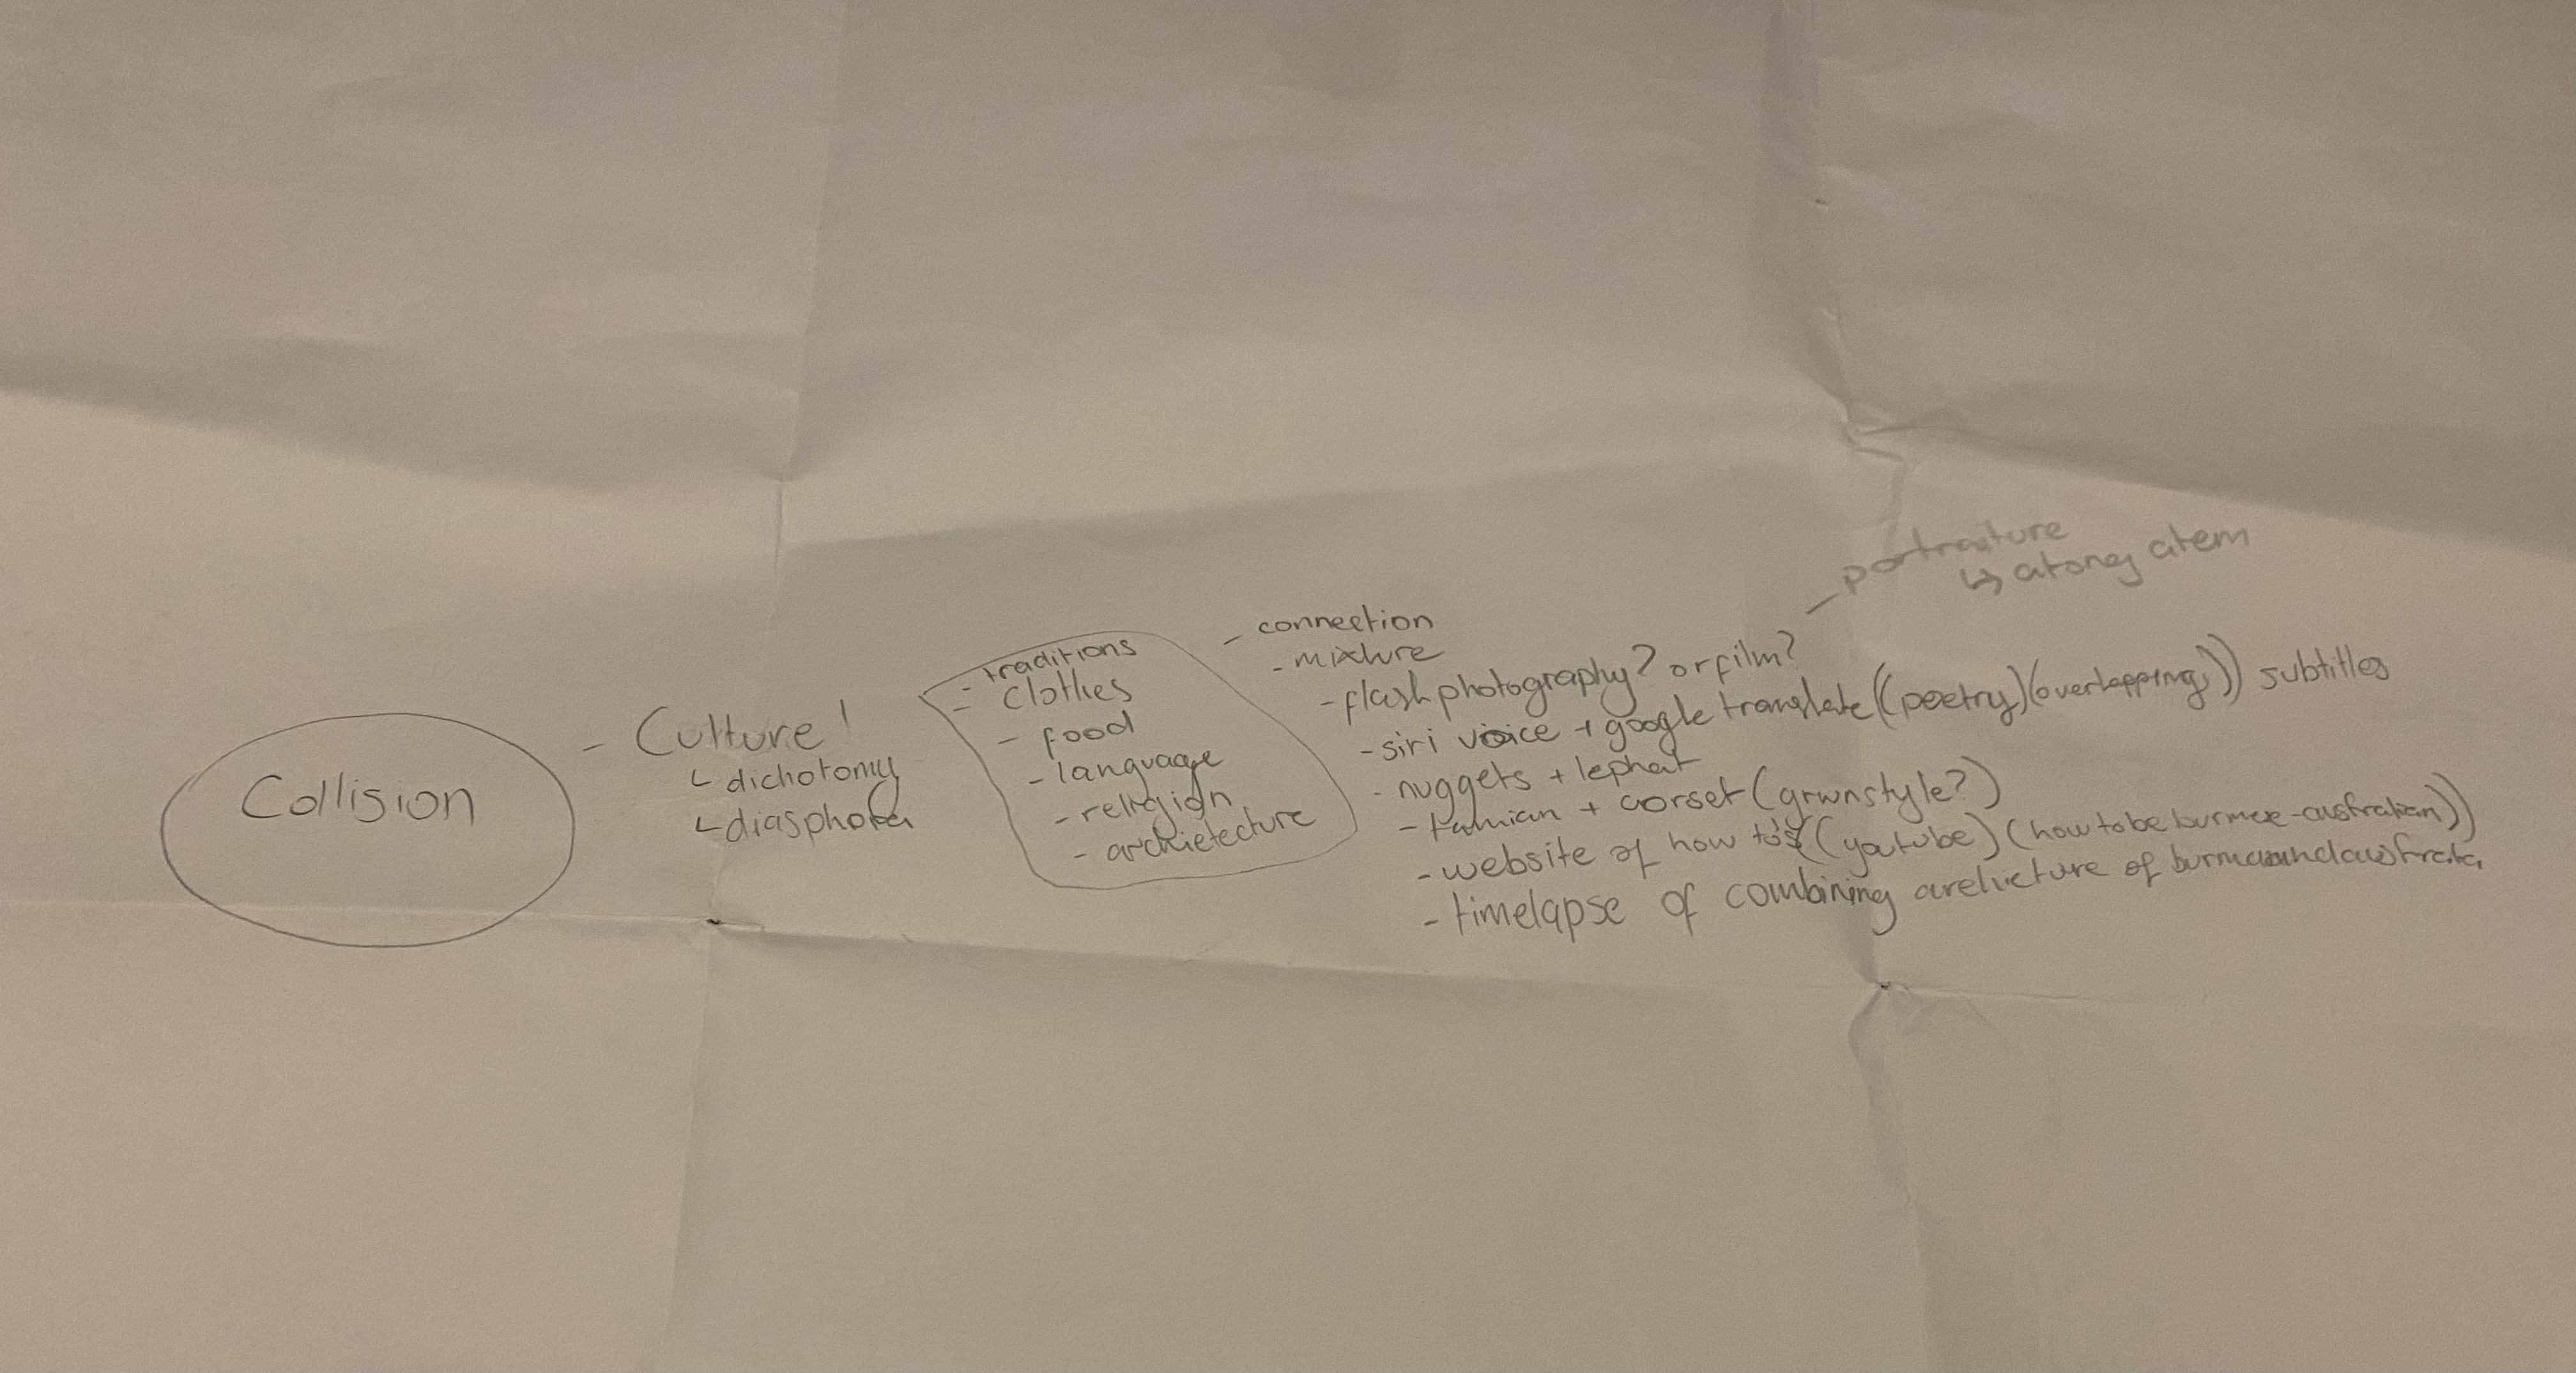 Collision
- Culture!
↳ dichotomy
↳ diasphora
- traditions
- clothes
- food
- language
- religion
- archietecture
- connection
- mixture
- flash photography? or film?
- siri voice + google translate ((poetry)(overlapping)) subtitles
- nuggets + lephat
- tamian + corset (grwn style?)
- website of how to's (youtube) (how to be burmese-australian))
- timelapse of combining architecture of burma and australia
- portraiture
↳ atoney atem